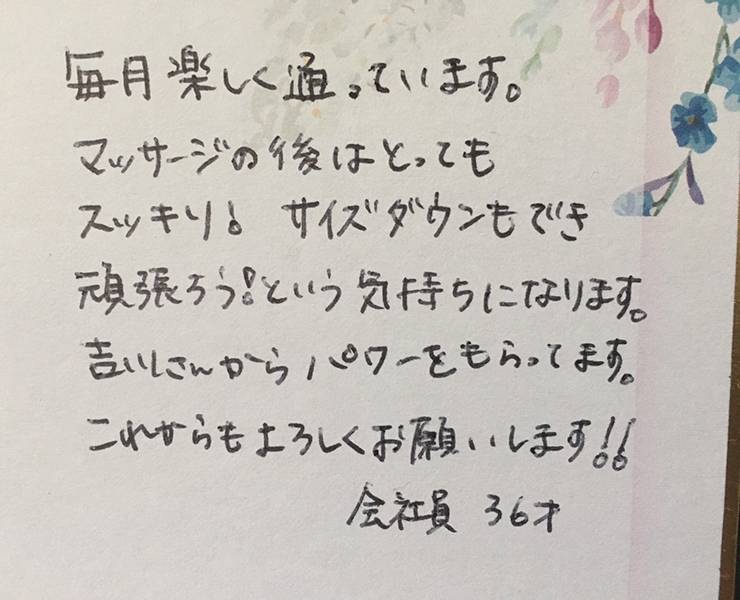 毎月楽しく通っています。
マッサージの後はとっても
スッキリ! サイズダウンもでき
頑張ろう!という気持ちになります。
吉川さんからパワーをもらってます。
これからもよろしくお願いします!!
会社員 36才